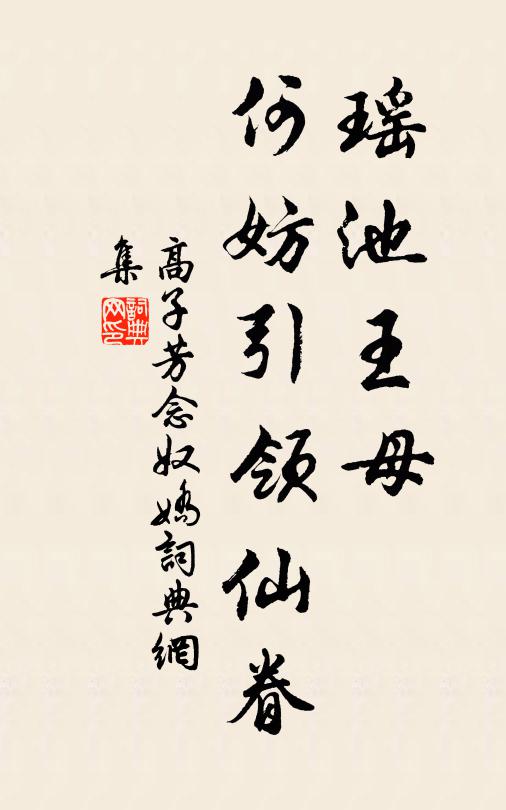 瑶池王母
何妨引领仙眷
高子芳念奴嬌詞典網
集
詞典
网印